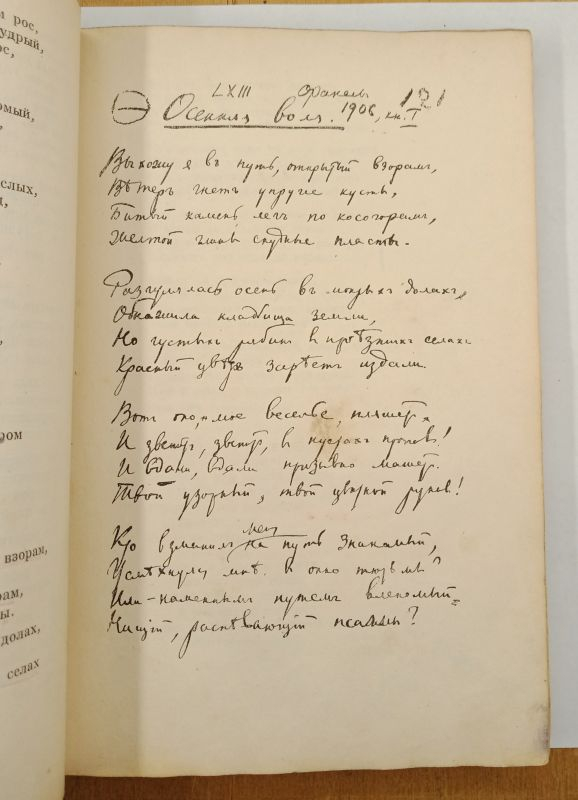 м рос,
удрый,
ос,
омый,
слых,
ром
взорам,
рам,
ы.
долах,
селах
LXIII Факелы 121
Осенняя воля. 1906, кн. I
Выхожу я въ путь, открытый взорамъ,
Вѣтеръ гнетъ упругие кусты,
Битый камень легъ по косогорамъ,
Желтой глины скудные пласты.
Разгулялась осень въ мокрыхъ долахъ,
Обнажила кладбища земли,
Но густыхъ рябинъ в проѣзжихъ селахъ
Красный цвѣтъ зарѣетъ издали.
Вотъ оно, мое веселье, пляшетъ
И звенитъ, звенитъ, в кустахъ пропавъ!
И вдали, вдали призывно машетъ
Твой узорный, твой цвѣтной рукавъ!
Кто взманилъ меня на путь знакомый,
Усмѣхнулся мнѣ в окно тюрьмы?
Или – каменнымъ путемъ влекомый
Нищій, распѣвающій псалмы?